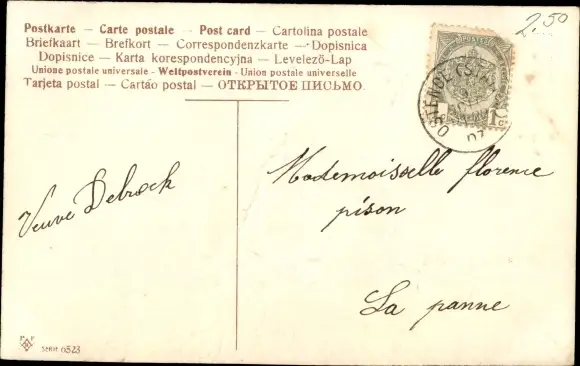 2.50
Postkarte — Carte postale — Post card — Cartolina postale
Briefkaart — Brefkort — Correspondenzkarte — Dopisnica
Dopisnice — Karta korespondencyjna — Levelező-Lap
Unione postale universale - Weltpostverein - Union postale universelle
Tarjeta postal — Cartão postal — ОТКРЫТОЕ ПИСЬМО.
OSTENDE
07
1c
Mademoiselle florence
pison
Veuve Debrock
La panne
SERIE 6523